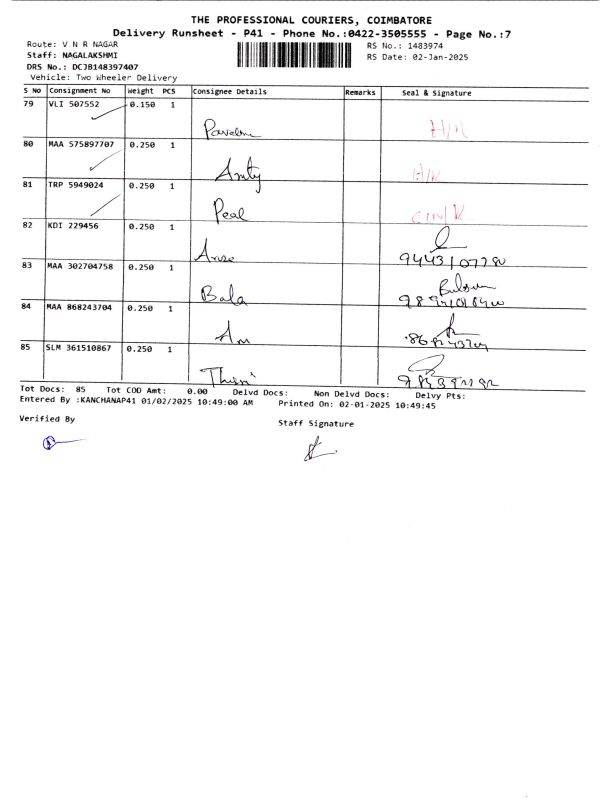 THE PROFESSIONAL COURIERS, COIMBATORE
Delivery Runsheet - P41 - Phone No.:0422-3505555 - Page No.:7
Route: V N R NAGAR RS No.: 1483974
Staff: NAGALAKSHMI RS Date: 02-Jan-2025
DRS No.: DCJB148397407
Vehicle: Two Wheeler Delivery
S No Consignment No Weight PCS Consignee Details Remarks Seal & Signature
79 VLI 507552 0.150 1
80 MAA 575897707 0.250 1
81 TRP 5949024 0.250 1
Peal
82 KDI 229456 0.250 1
83 MAA 302704758 0.250 1
Bala
84 MAA 868243704 0.250 1
85 SLM 361510867 0.250 1
Tot Docs: 85 Tot COD Amt: 0.00 Delvd Docs: Non Delvd Docs: Delvy Pts:
Entered By :KANCHANAP41 01/02/2025 10:49:00 AM Printed On: 02-01-2025 10:49:45
Verified By
Staff Signature